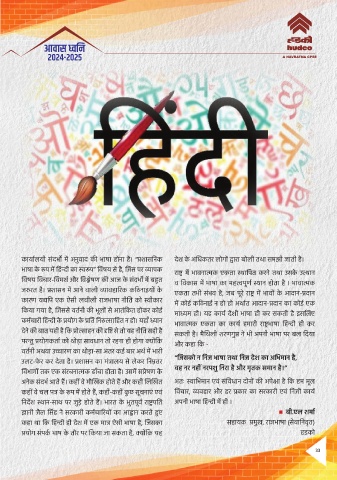 आवास ध्वनि
2024-2025
हडको
hudco
A NAVRATNA CPSE
हिंदी
कार्यालयी संदर्भों में अनुवाद की भाषा होना है। "प्रशासनिक
भाषा के रूप में हिन्दी का स्वरूप" विषय से है, जिस पर व्यापक
विचार-विमर्श और विश्लेषण की आज के संदर्भों में बहुत
जरूरत है। प्रशासन में आने वाली व्यावहारिक कठिनाइयों के
कारण यद्यपि एक ऐसी लचीली राजभाषा नीति को स्वीकार
किया गया है, जिससे वर्तनी की भूलों से आतंकित होकर कोई
कर्मचारी हिन्दी के प्रयोग के प्रति निरुत्साहित न हो। यहाँ ध्यान
देने की बात यही है कि प्रोत्साहन की दृष्टि से तो यह नीति सही है
परन्तु प्रयोगकर्ता को थोड़ा सावधान तो रहना ही होगा क्योंकि
वर्तनी अथवा उच्चारण का थोड़ा-सा अंतर कई बार अर्थ में भारी
उलट-फेर कर देता है। प्रशासन का मंत्रालय से लेकर निम्नतर
विभागों तक एक संरचनात्मक ढाँचा होता है। उसमें संप्रेषण के
अनेक संदर्भ आते हैं। कहीं वे मौखिक होते हैं और कहीं लिखित
कहीं वे चल पत्र के रूप में होते हैं, कहीं-कहीं कुछ सूचनाएं एवं
निर्देश स्थान-साथ पर जुड़े होते हैं। भारत के भूतपूर्व राष्ट्रपति
ज्ञानी जैल सिंह ने सरकारी कर्मचारियों का आह्वान करते हुए
कहा था कि हिन्दी ही देश में एक मात्र ऐसी भाषा है, जिसका
प्रयोग संपर्क भाषा के तौर पर किया जा सकता है, क्योंकि यह
देश के अधिकतर लोगों द्वारा बोली तथा समझी जाती है।
राष्ट्र में भावनात्मक एकता स्थापित करने तथा उसके उत्थान
व विकास में भाषा का महत्वपूर्ण स्थान होता है । भावात्मक
एकता तभी संभव है, जब पूरे राष्ट्र में भावों के आदान-प्रदान
में कोई कठिनाई न हो हो अर्थात आदान-प्रदान का कोई एक
माध्यम हो। यह कार्य देशी भाषा ही कर सकती है इसलिए
भावात्मक एकता का कार्य हमारी राष्ट्रभाषा हिन्दी ही कर
सकती है। मैथिली शरणगुप्त ने भी अपनी भाषा पर बल दिया
और कहा कि -
"जिसको न निज भाषा तथा निज देश का अभिमान है,
वह नर नहीं नरपशु निरा है और मृतक समान है।"
अतः स्वाभिमान एवं संविधान दोनों की अपेक्षा है कि हम मूल
विचार, व्यवहार और हर प्रकार का सरकारी एवं निजी कार्य
अपनी भाषा हिन्दी में ही ।
■ वी.एल शर्मा
सहायक प्रमुख, राजभाषा (सेवानिवृत)
हडको
33